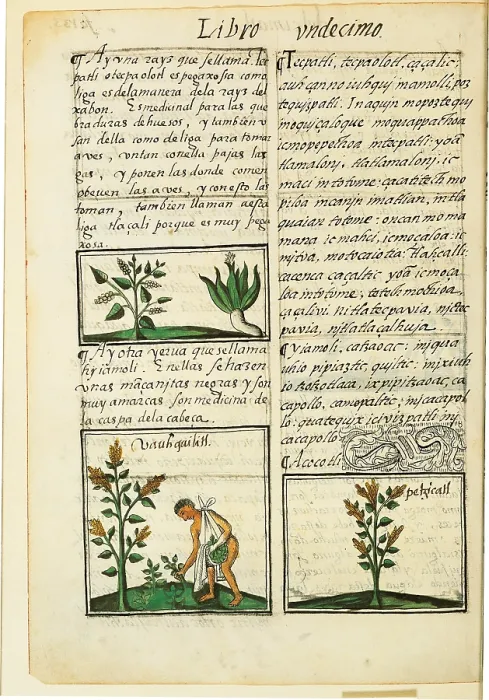 Libro vndecimo.
¶ Ay vna rayz que sellama tec
patli o tecpaolotl es pegaxosa como
liga es de la manera dela rays del
xabon. Es medicinal para las que
braduras de huesos, y tambien v
san della como de liga para tomar
aves, vntan con ella pajas lar
gas, y ponen las donde comen
obeuen las aves, y con esto las
toman, tambien llaman aesta
liga tlaçali porque es muy pega
xosa.
¶ Ay otra yerua que sellama
Enellas se hazen
vnas mãçanitas negras y son
muy amargas son medicina de
la caspa dela cabeça.
vauhquilitl.
¶ Tecpatli, tecpaolotl, caçalic:
auh çanno iuhquj inamolli, poz
tequjzpatli. In aqujn mopoztequj
moqujcaloque moquappathoa
icmopepechoa intecpatli: yoã
tlamalonj, tlatlamalonj, ic
maci intotome; çacatitech mo
piloa incanjn imatlian, intla
quaian totome: oncan mo ma
mana ic mahci, icmoçaloa: ic
tlahçalli
cacenca caçaltic yoã icmoça
loa intotome; tetech mochioa
caçalivi. nitlatecpavia, njctec
pavia, njtlatlaçalhuja.
¶ Iyiamoli. catzaoac: injqua
uhio pipiaztic, quiltic: injxiuh
io tzotzotlaca, ixpipitzaoac, ca
capollo, camopaltic; injcacapol
lo: quatequixiquizpatli inj
cacapollo
¶ Acocotli
petzicatl